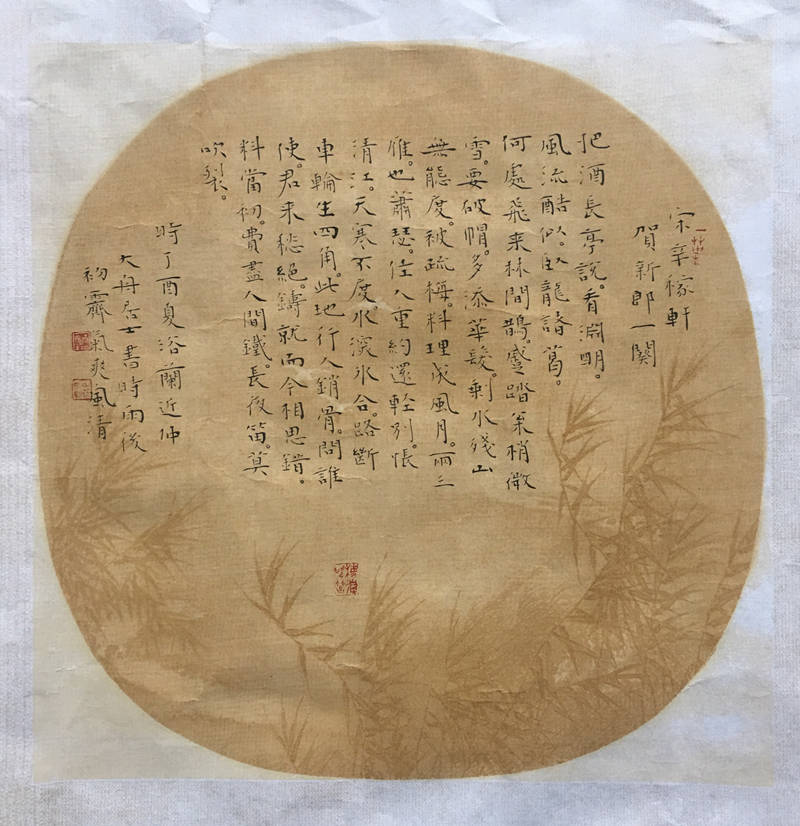 宋辛稼軒
賀新郎一闋
把酒長亭說。看淵明。
風流酷似。臥龍諸葛。
何處飛來林間鵲。蹙踏桼梢微
雪。要破帽。多添華髮。剩水殘山
無態度。被疏梅。料理成風月。兩三
雁。也蕭瑟。佳人重約還輕別。悵
清江。天寒不度。水深冰合。路斷
車輪生四角。此地行人銷骨。問誰
使。君來愁絕。鑄就而今相思錯。
料當初。費盡人間鐵。長夜笛。莫
吹裂。
時丁酉夏浴蘭近仲
大舟居士書時雨後
初霽氣爽風清